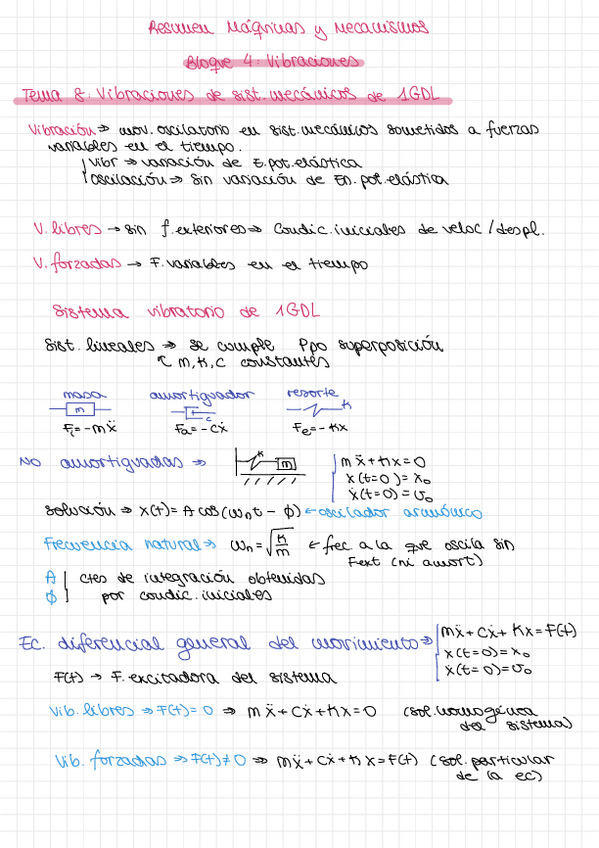 Resumen Máquinas y Mecanismos
Bloque 4: Vibraciones
Tema 8: Vibraciones de sist. mecánicos de 1GDL
Vibración ⇒ mov. oscilatorio en sist. mecánicos sometidos a fuerzas
variables en el tiempo.
Vibr ⇒ variación de E. pot. elástica
Oscilación ⇒ Sin variación de En. pot. elástica
V. libres → sin f. exteriores ⇒ Condic. iniciales de veloc / despl.
V. forzadas → F. variables en el tiempo
Sistema vibratorio de 1GDL
Sist. lineales ⇒ se cumple Ppo superposición
m, K, C constantes
masa amortiguador resorte
m c K
Fi = -mẍ Fa = -cẋ Fe = -Kx
NO amortiguadas ⇒ K m mẍ + Kx = 0
x(t=0) = x₀
ẋ(t=0) = v₀
Solución ⇒ x(t) = A cos(ωnt - ϕ) ← oscilador armónico
Frecuencia natural ⇒ ωn = √(K/m) ← frec a la que oscila sin
Fext (ni amort)
A ctes de integración obtenidas
ϕ por condic. iniciales
Ec. diferencial general del movimiento ⇒ mẍ + cẋ + Kx = F(t)
x(t=0) = x₀
ẋ(t=0) = v₀
F(t) → F. excitadora del sistema
Vib. libres ⇒ F(t) = 0 ⇒ mẍ + cẋ + Kx = 0 (sol. homogénea
del sistema)
Vib. forzadas ⇒ F(t) ≠ 0 ⇒ mẍ + cẋ + Kx = F(t) (sol. particular
de la ec)